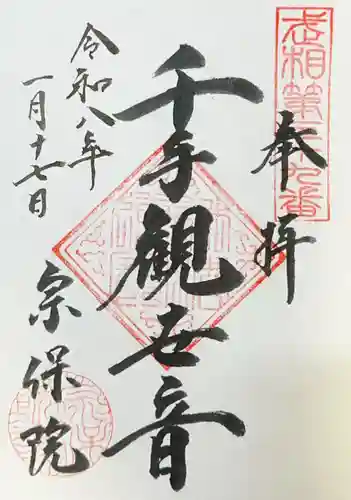 武相第二十九番
奉拝
千手観世音
令和八年
一月十七日
宗保院